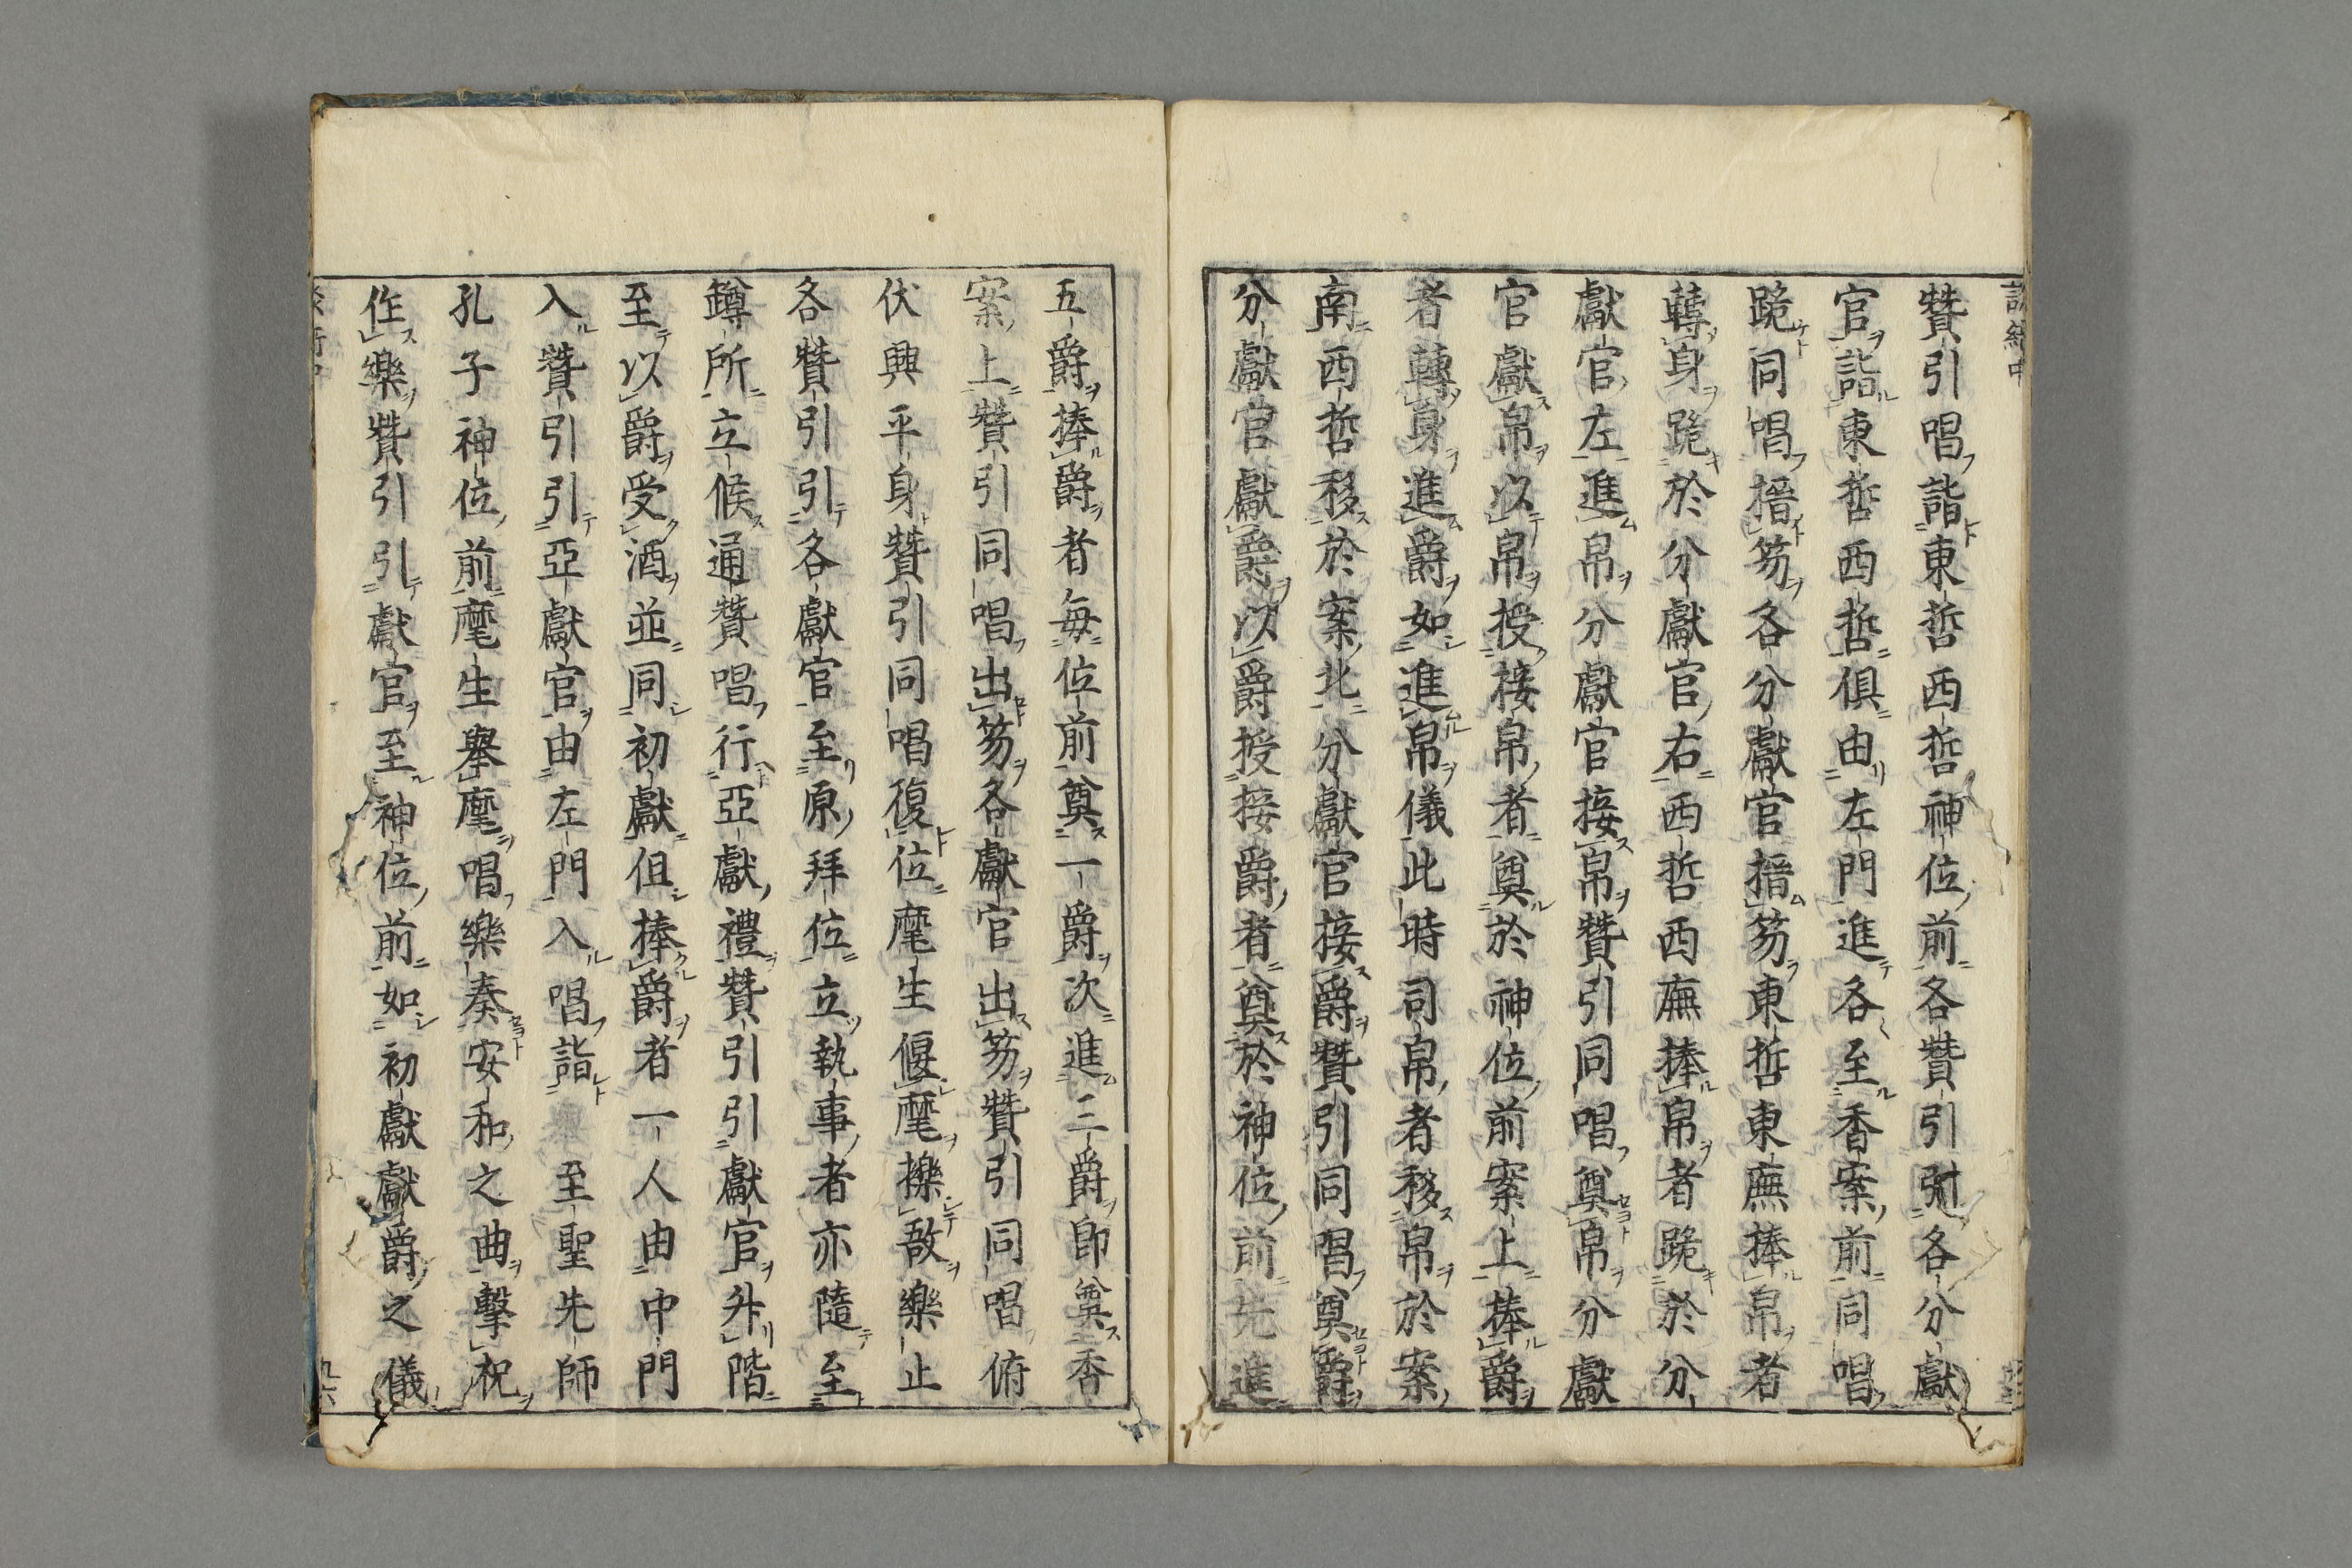 贊引唱詣東哲西哲神位前各贊引引各分獻
官詣東哲西哲俱由左門進各至香案前同唱
跪同唱搢笏各分獻官搢笏東哲東廡捧帛者
轉身跪於分獻官右西哲西廡捧帛者跪於分
獻官左進帛分獻官接帛贊引同唱奠帛分獻
官獻帛以帛授接帛者奠於神位前案上捧爵
者轉身進爵如進帛儀此時司帛者移帛於案
南西哲移於案北分獻官接爵贊引同唱奠爵
分獻官獻爵以爵授接爵者奠於神位前先進
五爵捧爵者每位前奠一爵次進三爵即奠香
案上贊引同唱出笏各獻官出笏贊引同唱俯
伏興平身贊引同唱復位麾生偃麾擽敔樂止
各贊引引各獻官至原拜位立執事者亦隨至
罇所立候通贊唱行亞獻禮贊引引獻官升階
至以爵受酒並同初獻但捧爵者一人由中門
入贊引引亞獻官由左門入唱詣 至聖先師
孔子神位前麾生舉麾唱樂奏安和之曲擊柷
作樂贊引引獻官至神位前如初獻獻爵之儀